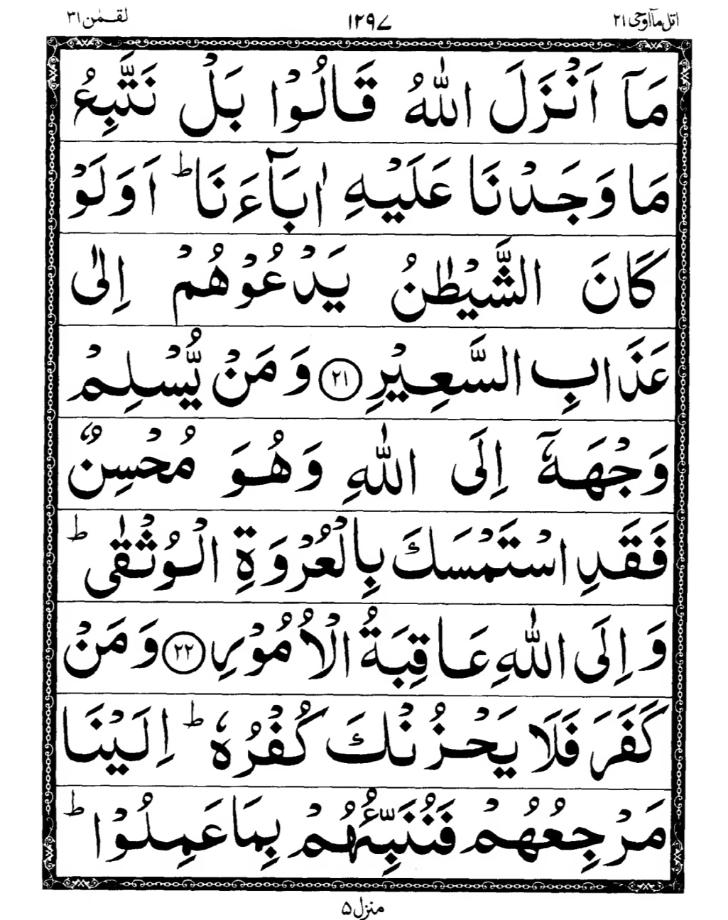 اتل مآ اوحی ۲۱ ۱۲۹۷ لقمٰن ۳۱
مَاۤ اَنْزَلَ اللّٰهُ قَالُوْا بَلْ نَتَّبِعُ
مَا وَجَدْنَا عَلَیْهِ اٰبَآءَنَا ؕ اَوَلَوْ
كَانَ الشَّیْطٰنُ یَدْعُوْهُمْ اِلٰی
عَذَابِ السَّعِیْرِ ۲۱ وَ مَنْ یُّسْلِمْ
وَجْهَهٗۤ اِلَی اللّٰهِ وَهُوَ مُحْسِنٌ
فَقَدِ اسْتَمْسَكَ بِالْعُرْوَةِ الْوُثْقٰی ؕ
وَ اِلَی اللّٰهِ عَاقِبَةُ الْاُمُوْرِ ۲۲ وَ مَنْ
كَفَرَ فَلَا یَحْزُنْكَ كُفْرُهٗ ؕ اِلَیْنَا
مَرْجِعُهُمْ فَنُنَبِّئُهُمْ بِمَا عَمِلُوْا ؕ
منزل ۵